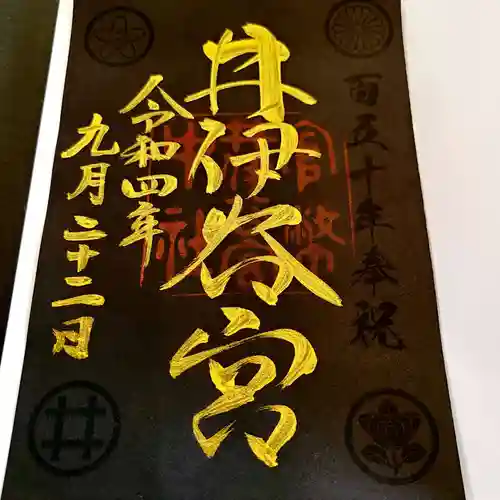 百五十年奉祝
井伊谷宮
令和四年
九月二十二日